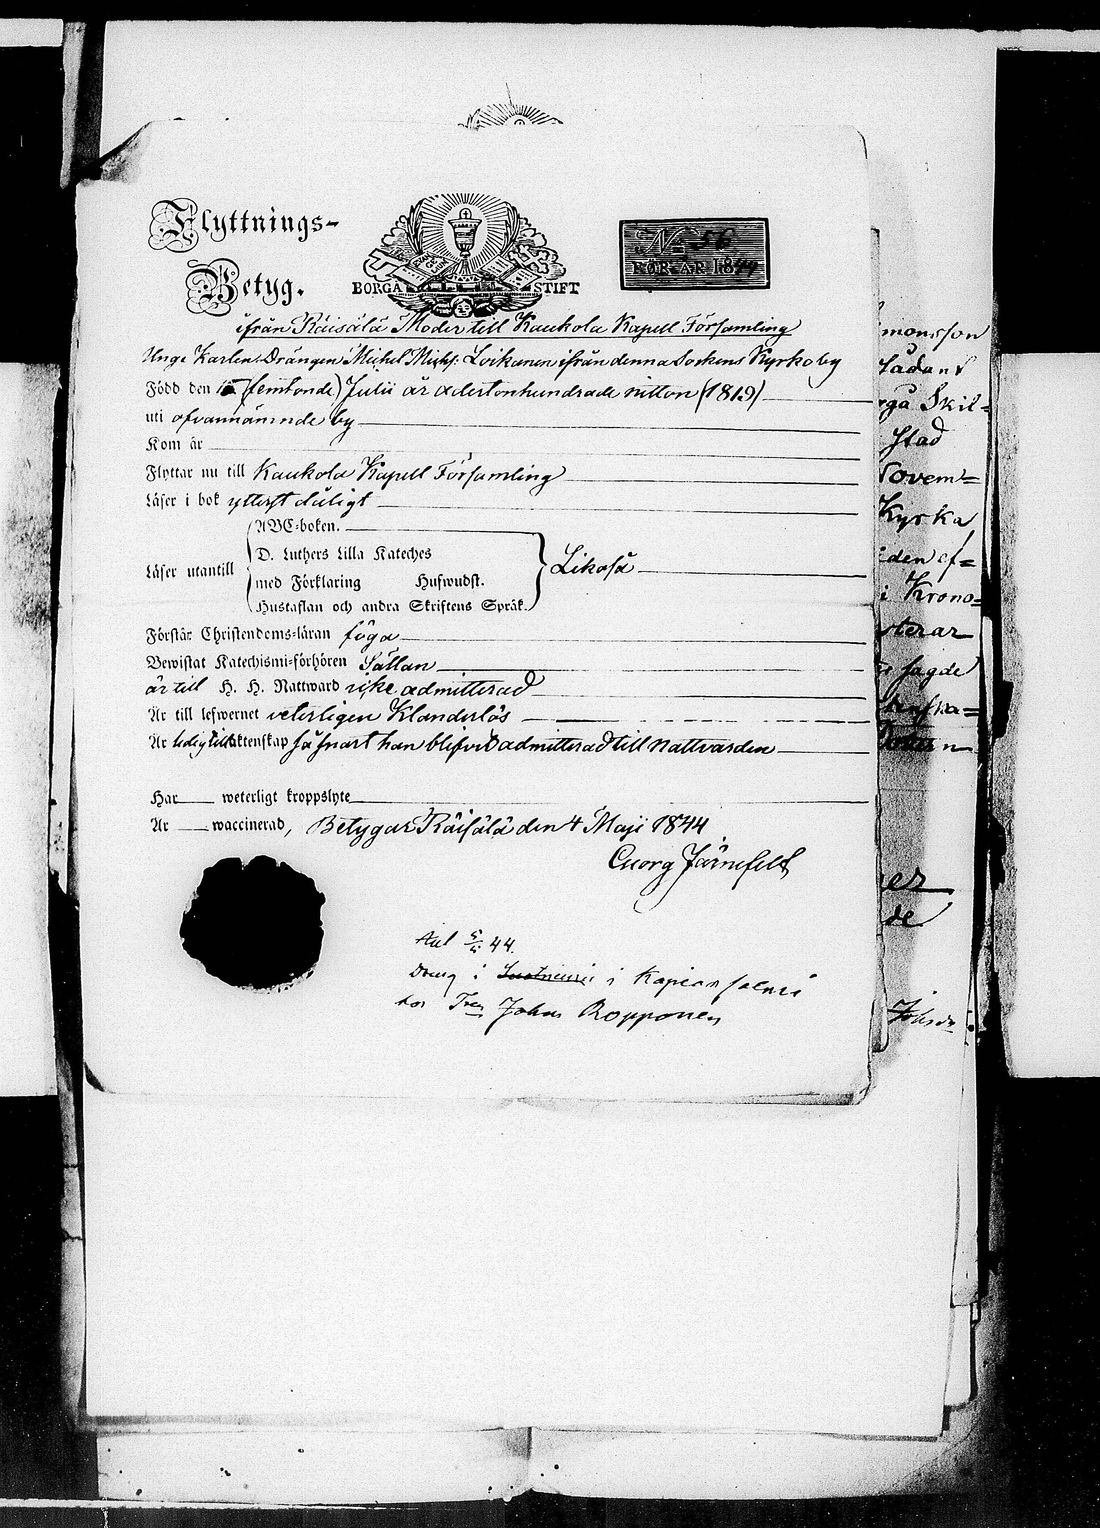 Flyttnings-
Betyg.
BORGÅ STIFT
No 56
FÖR ÅR 1844
ifrån Räisälä Moder till Kaukola Kapell Församling
Unge Karlen Drängen Michel Michs: Loikanen ifrån denna Sockens Kyrkoby
Född den 15 (femtonde) Julii år adertonhundrade nitton (1819)
uti ofvannämnde by
Kom år
Flyttar nu till Kaukola Kapell Församling
Läser i bok ytterst dåligt
Läser utantill
ABC-boken.
D. Luthers Lilla Kateches
med Förklaring Hufwudst.
Hustaflan och andra Skriftens Språk.
Likaså
Förstår Christendoms-läran föga
Bewistat Katechismi-förhören Sällan
är till H. H. Nattward icke admitterad
Är till lefwernet veterligen Klanderlös
Är ledig till äktenskap så snart han blifvit admitterad till Nattvarden
Har weterligt kroppslyte
Är waccinerad, Betygar Räisälä den 4 Maji 1844
Georg Järnefelt
44.
Dräng i i
hos Johan Ropponen
monsson
Sådant
rgå Skil=
stad
Novem=
Kyrka
den ef=
i Krono=
sterar
sagde
er
de